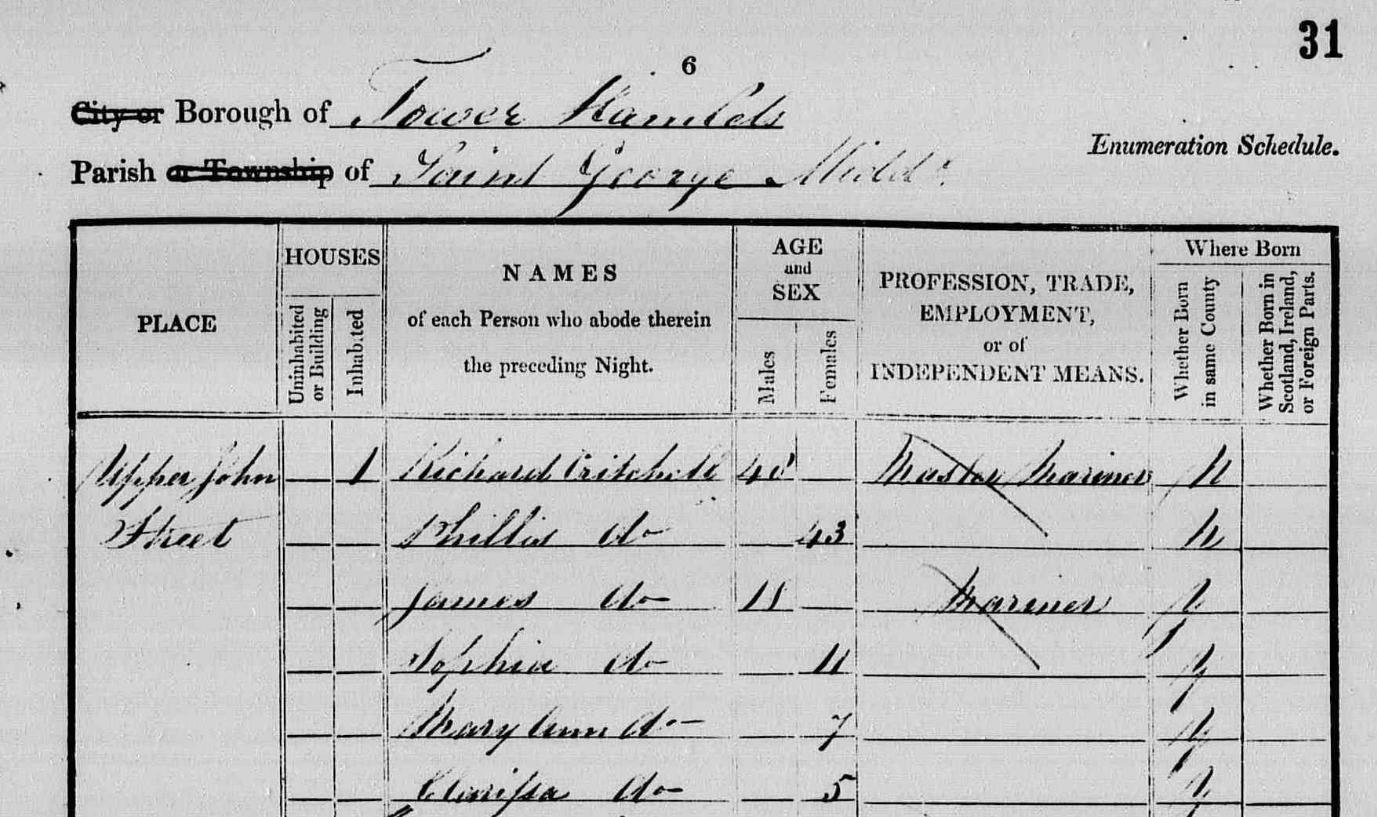 31
6
City or Borough of Tower Hamlets
Enumeration Schedule.
Parish or Township of Saint George Middx
PLACE
HOUSES
Uninhabited or Building
Inhabited
NAMES
of each Person who abode therein
the preceding Night.
AGE
and
SEX
Males
Females
PROFESSION, TRADE,
EMPLOYMENT,
or of
INDEPENDENT MEANS.
Where Born
Whether Born
in same County
Whether Born in
Scotland, Ireland,
or Foreign Parts.
Upper John 1 Richard Critchell Master Mariner N
Street Phillis do 43 N
James do Mariner y
Sophia do 11 y
Mary Ann do 7 y
Clarissa do 5 y